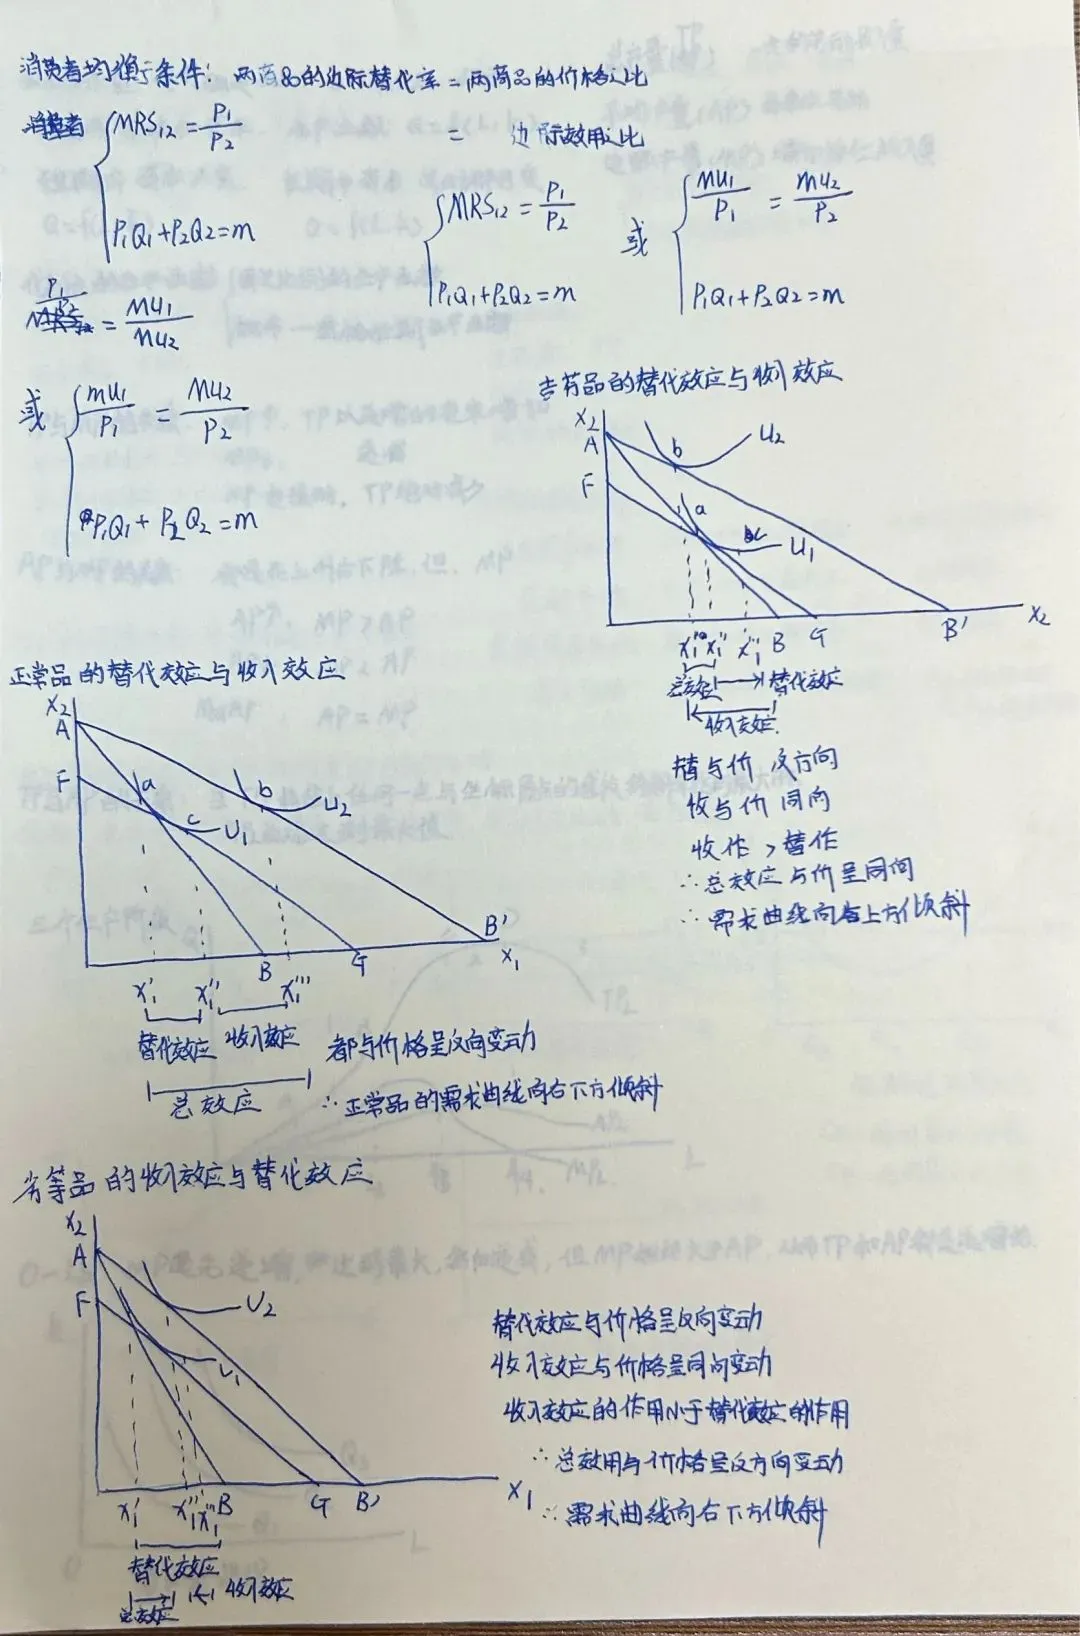 消费者均衡条件：两商品的边际替代率=两商品的价格之比
= 边际效用之比
MRS₁₂ = P₁/P₂
P₁Q₁+P₂Q₂=m
P₁/P₂ = MU₁/MU₂
或 MU₁/P₁ = MU₂/P₂
P₁Q₁+P₂Q₂=m
MRS₁₂ = P₁/P₂
P₁Q₁+P₂Q₂=m
或 MU₁/P₁ = MU₂/P₂
P₁Q₁+P₂Q₂=m
吉芬品的替代效应与收入效应
X₂
A b U₂
F a c U₁
X₁' X₁'' B G B' X₂
总效应 替代效应
收入效应
替与价 反方向
收与价 同向
收作 > 替作
∴总效应与价呈同向
∴需求曲线向右上方倾斜
正常品的替代效应与收入效应
X₂
A
F a b U₂
c U₁
B G B' X₁
X₁' X₁'' X₁'''
替代效应 收入效应 都与价格呈反向变动
总效应 ∴正常品的需求曲线向右下方倾斜
劣等品的收入效应与替代效应
X₂
A
F U₂
U₁
X₁' X₁'' X₁''' B G B' X₁
替代效应
总效应 收入效应
替代效应与价格呈反向变动
收入效应与价格呈同向变动
收入效应的作用小于替代效应的作用
∴总效用与价格呈反方向变动
∴需求曲线向右下方倾斜